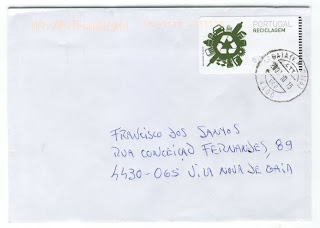 PORTUGAL
RECICLAGEM
FRANCISCO DOS SANTOS
RUA CONCEIÇAO FERNANDES, 89
4430-065 VILA NOVA DE GAIA